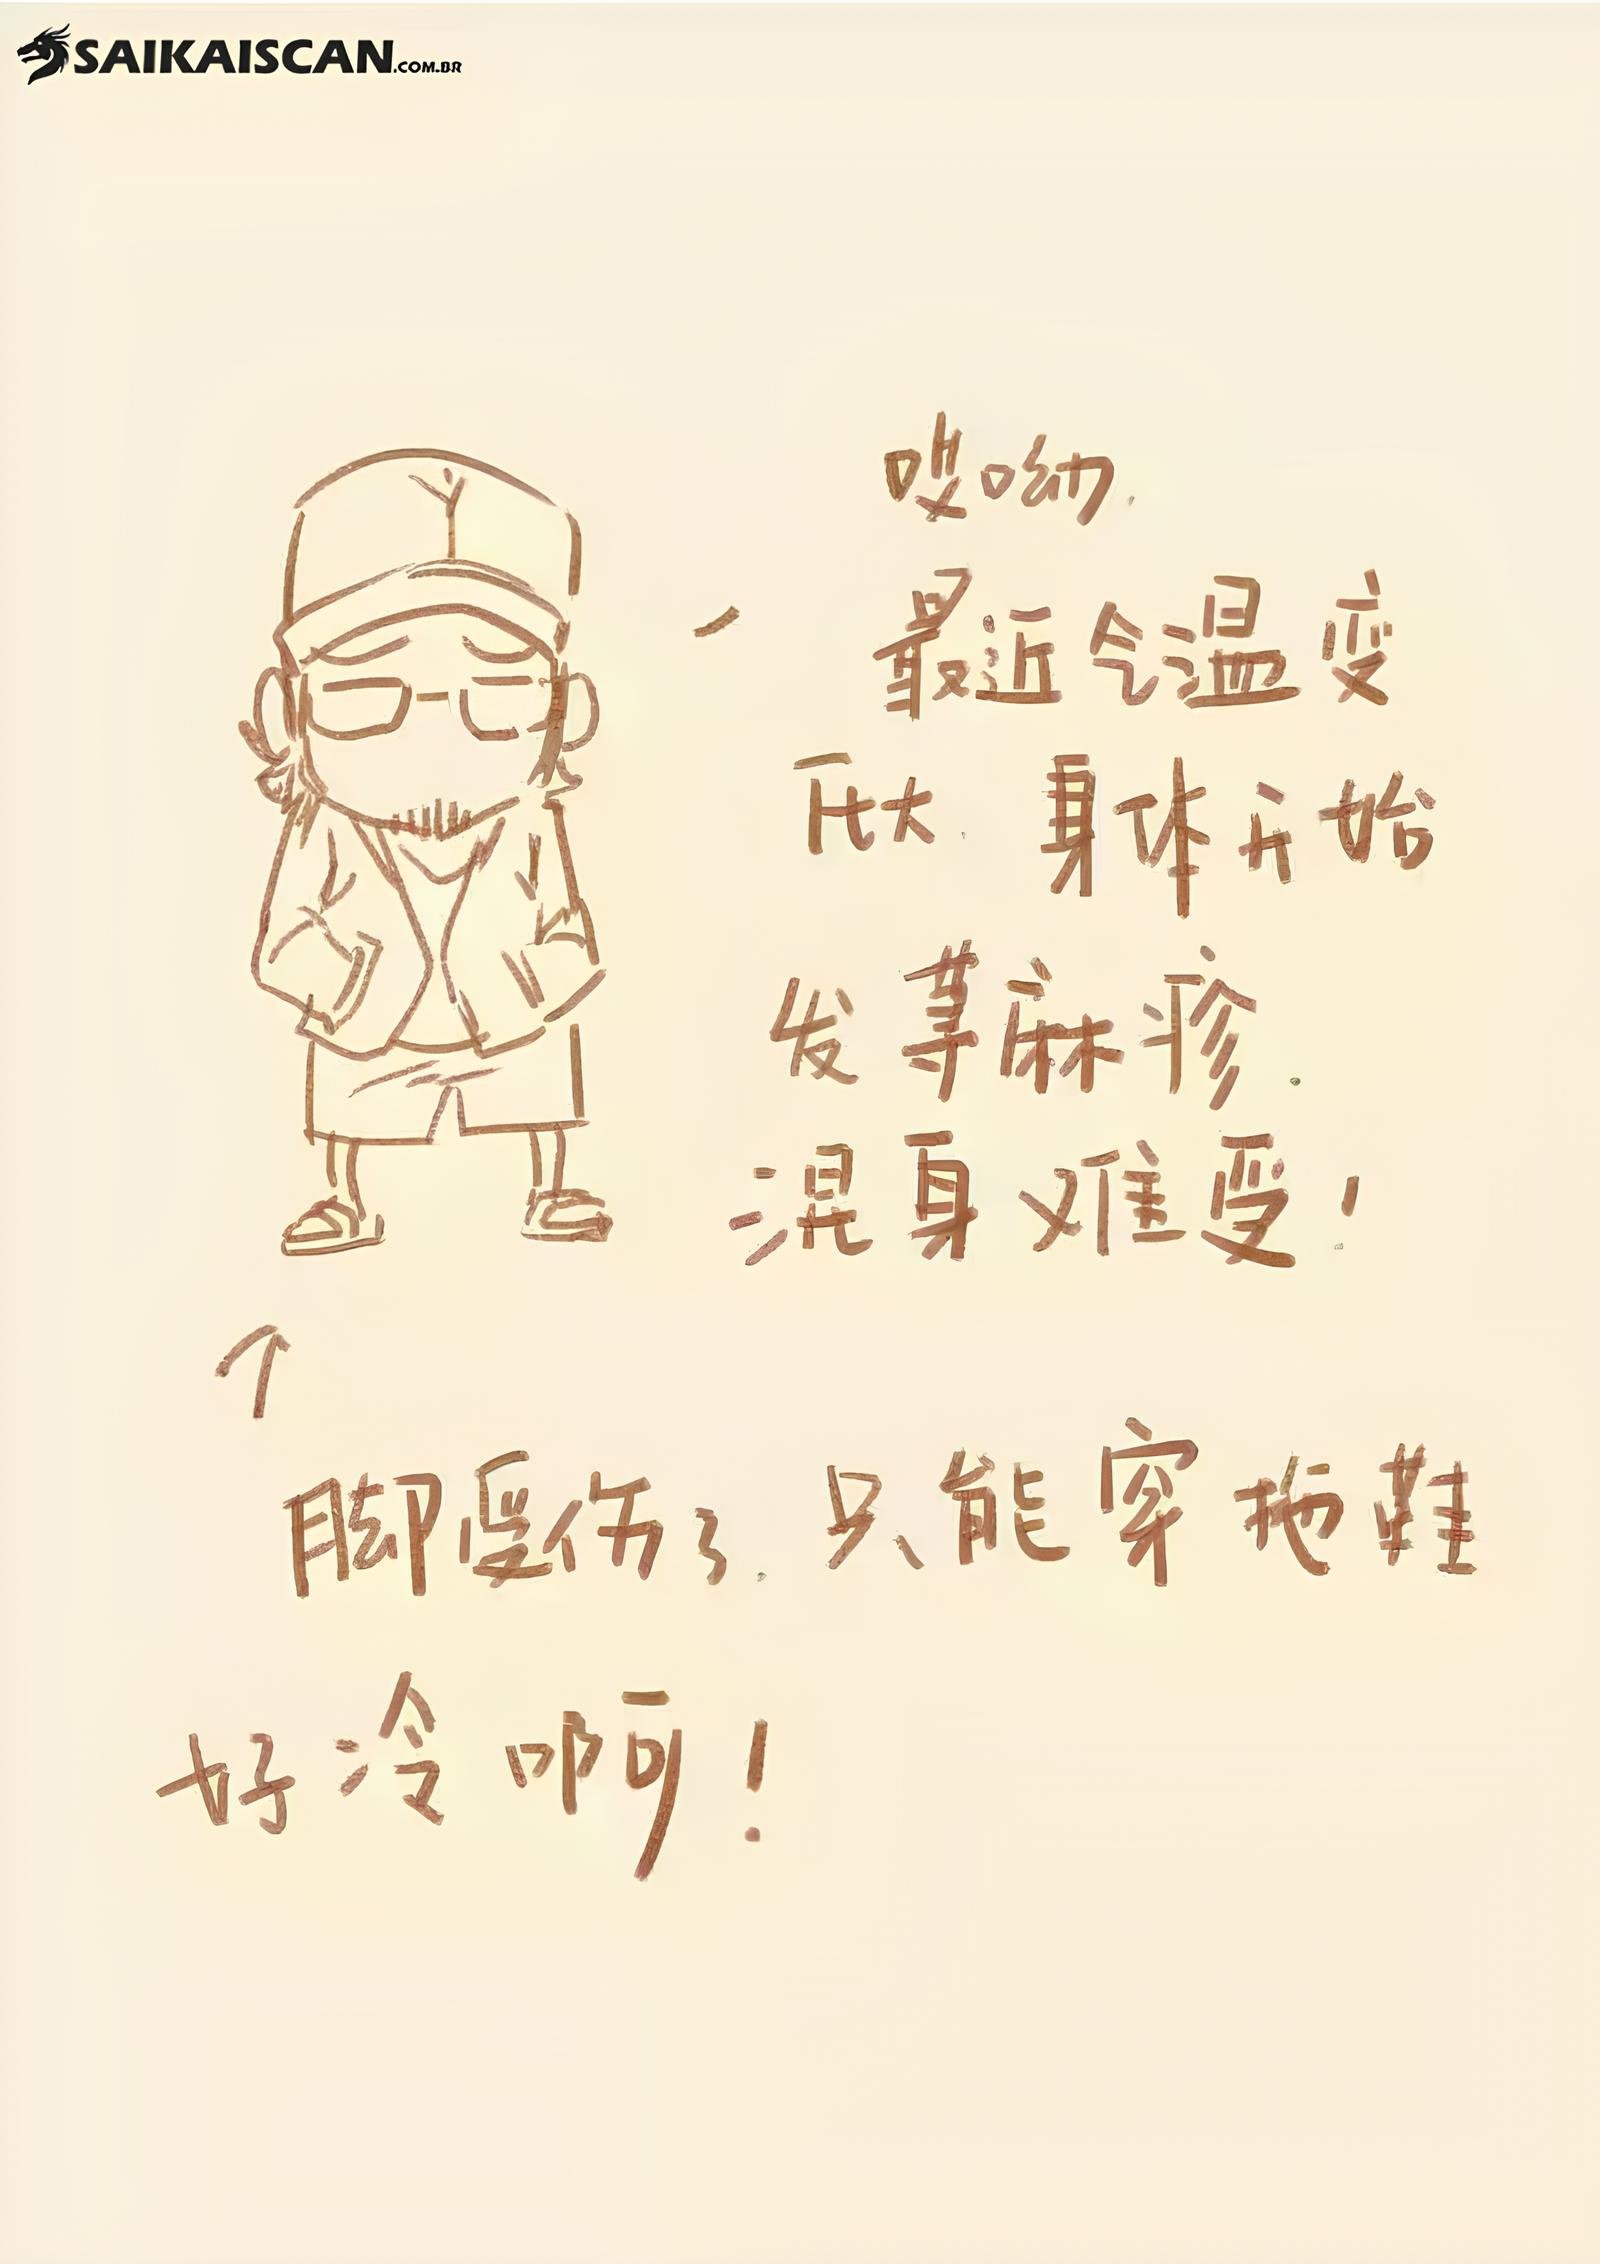 SAIKAISCAN.COM.BR
哎呦.
最近气温变
压大.身体开始
发荨麻疹.
混身难受!
脚受伤了.只能穿拖鞋
好冷啊!